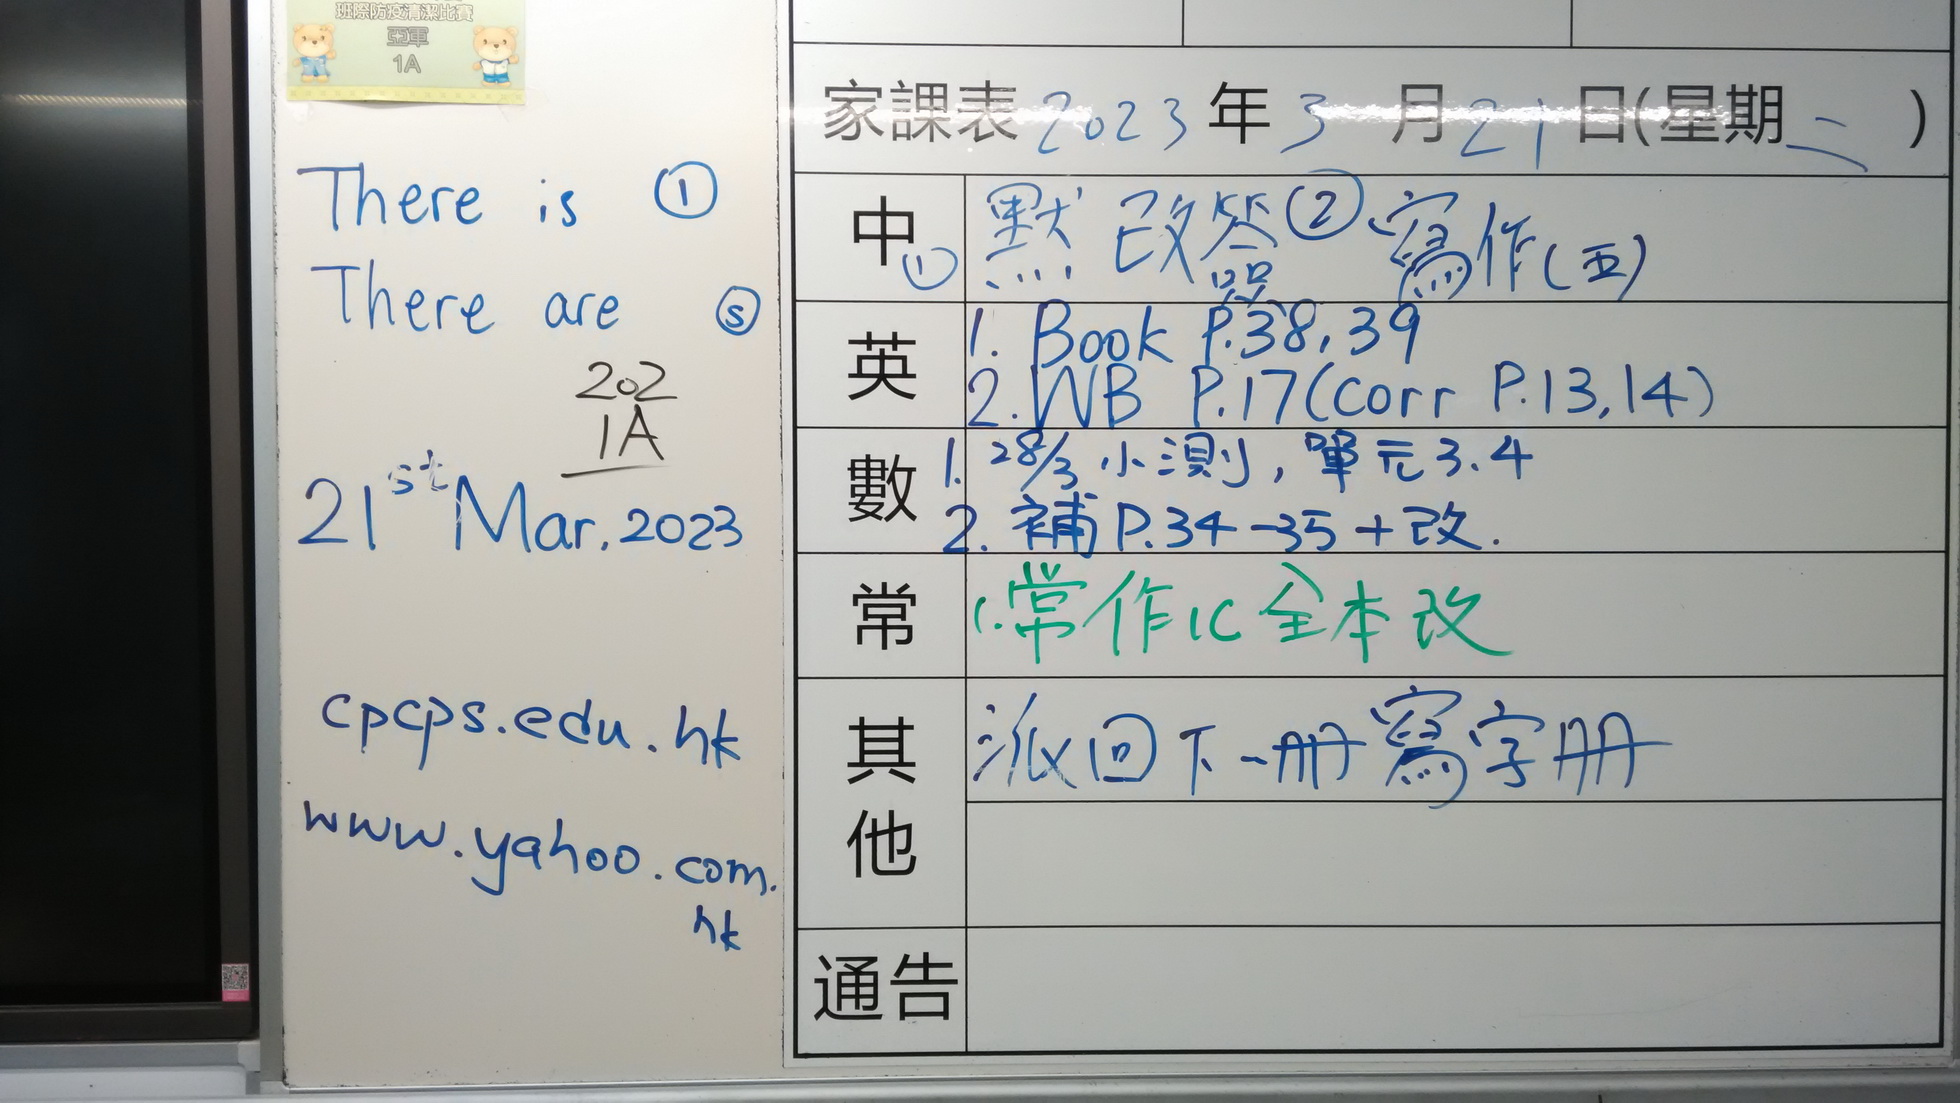 班際防疫清潔比賽
亞軍
1A
There is ①
There are ⓢ
202
1A
21st Mar. 2023
cpcps.edu.hk
www.yahoo.com.
hk
家課表 2023 年 3 月 21 日(星期二)
中 ① 默 改簽 ② 寫作(五)
英
1. Book P.38, 39
2. WB P.17 (corr P.13, 14)
數
1. 28/3 小測, 單元3.4
2. 補 P.34-35 + 改.
常 1. 常作1C 全本改
其他
派回下一冊寫字冊
通告